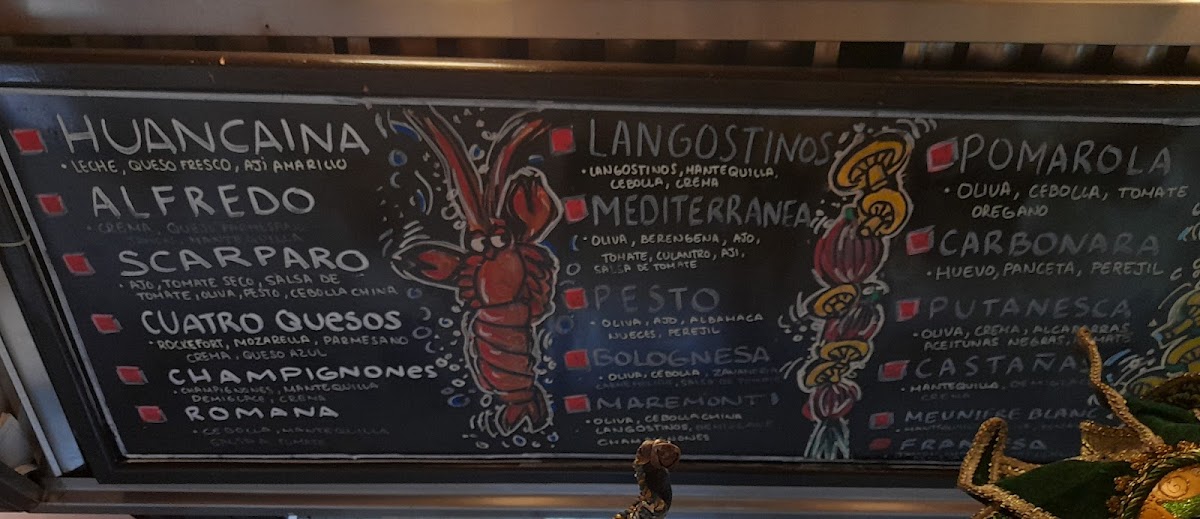 HUANCAINA
• LECHE, QUESO FRESCO, AJÍ AMARILLO
ALFREDO
• CREMA, QUESO PARMESANO
SCARPARO
• AJO, TOMATE SECO, SALSA DE
TOMATE, OLIVA, PESTO, CEBOLLA CHINA
CUATRO QUESOS
• ROCKEFORT, MOZARELLA, PARMESANO
CREMA, QUESO AZUL
CHAMPIGNONES
• CHAMPIGNONES, MANTEQUILLA
DEMIGLACE, CREMA
ROMANA
• CEBOLLA, MANTEQUILLA
SALSA TOMATE
LANGOSTINOS
• LANGOSTINOS, MANTEQUILLA,
CEBOLLA, CREMA
MEDITERRANEA
• OLIVA, BERENGENA, AJO,
TOMATE, CULANTRO, AJI,
SALSA DE TOMATE
PESTO
• OLIVA, AJO, ALBAHACA
NUECES, PEREJIL
BOLOGNESA
• OLIVA, CEBOLLA, ZANAHORIA
SALSA DE TOMATE
MAREMONTI
• OLIVA, CEBOLLA CHINA
LANGOSTINOS, DEMIGLACE
CHAMPIGNONES
POMAROLA
• OLIVA, CEBOLLA, TOMATE
OREGANO
CARBONARA
• HUEVO, PANCETA, PEREJIL
PUTANESCA
• OLIVA, CREMA, ALCAPARRAS
ACEITUNAS NEGRAS,
CASTAÑAS
• MANTEQUILLA,
CREMA
MEUNIERE BLANC